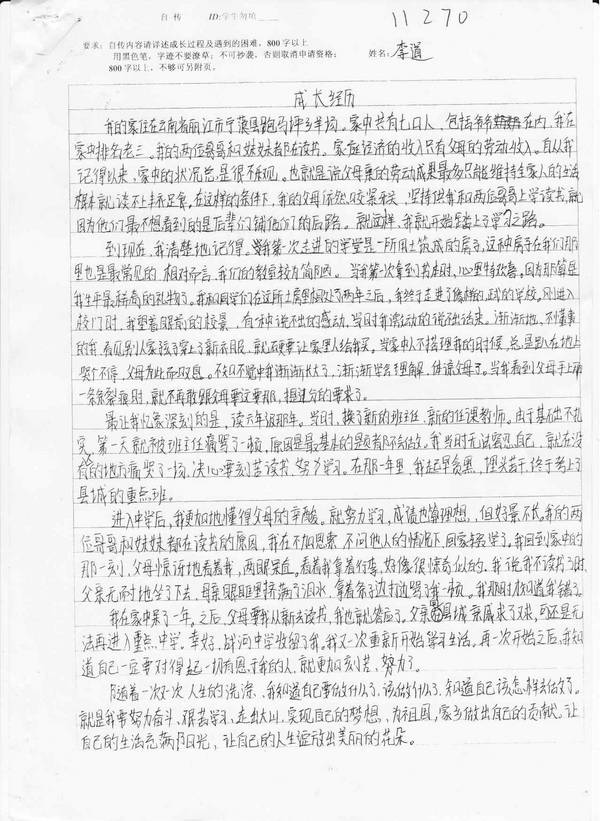 自 传 ID:学生勿填
11270
要求：自传内容请详述成长过程及遇到的困难，800字以上
用黑色笔，字迹不要潦草；不可抄袭，否则取消申请资格；
800字以上，不够可另附页。
姓名：李道
成长经历
我的家住在云南省丽江市宁蒗县跑马坪乡羊场。家中共有七口人，包括爷爷在内，我在
家中排名老三。我的两位哥哥和妹妹都在读书。家庭经济的收入只有父母的劳动收入。自从我
记得以来，家中的状况总是很不乐观。也就是说父母亲的劳动成果最多只能维持生家人的生活
根本就谈不上丰衣足食。在这样的条件下，我的父母依然咬紧牙关，坚持供我和两位哥哥上学读书，就
因为他们最不想看到的是后辈们铺他们的后路。就这样，我就开始踏上了学习之路。
到现在，我清楚地记得。我第一次走进的学堂是一所用土筑成的房子，这种房子在我们那
里也是最常见的。相对而言，我们的教室较为简陋。当我第一次拿到书本时，心里特欢喜。因为那算是
我生平最稀奇的礼物了。我和同学们在这所土房里相处了两年之后，我终于走进了像样的，正式的学校。刚进入
校门时，我望着眼前的校景，有一种说不出的感动，当时我激动的说不出话来。渐渐地，不懂事
的我，看见别人家孩子穿上了新衣服，就硬要让家里人给我买。当家中人不搭理我的时候，总是趴在地上
哭个不停，父母为此而叹息。不知不觉中我渐渐长大了，渐渐学会了理解，体谅父母了。当我看到父母手上那
一条条裂痕时，就不再敢跟父母要这要那，提过分的要求了。
最让我忆象深刻的是，读六年级那年。当时，换了新的班主任，新的任课教师。由于基础不扎
实，第一天就被班主任痛骂了一顿，原因是最基本的题都不会做。我当时无试容忍自己，就在没
有的地方痛哭了一场，决心要刻苦读书，努力学习。在那一年里，我起早贪黑，埋头苦干，终于考上了
县城的重点班。
进入中学后，我更加地懂得父母的辛酸。就努力学习，成绩也算理想，但好景不长。我的两
位哥哥和妹妹都在读书的原因，我在不加思索，不问他人的情况下，回家转学了。我回到家中的
那一刻，父母惊讶地看着我，两眼呆直，看着我拿着行李，好像很惊奇似的。我说我不读书了时，
父亲无耐地坐了下去，母亲眼眶里挤满了泪水，拿着条子边打边骂了我一顿。我那时才知道我错了。
我在家中呆了一年。之后，父母要我从新去读书，我也就答应了。父亲县城亲戚求了求，可还是无
法再进入重点中学。幸好，战河中学收留了我。我又一次重新开始学习生活。再一次开始之后，我知
道自己一定要对得起一切有恩于我的人，就更加刻苦、努力了。
随着一次又一次人生的洗涤，我知道自己要做什么了，该做什么了，知道自己该怎样去做了。
就是我要努力奋斗，艰苦学习，走出大山，实现自己的梦想，为祖国，家乡做出自己的贡献。让
自己的生活充满阳光，让自己的人生谥放出美丽的花朵。